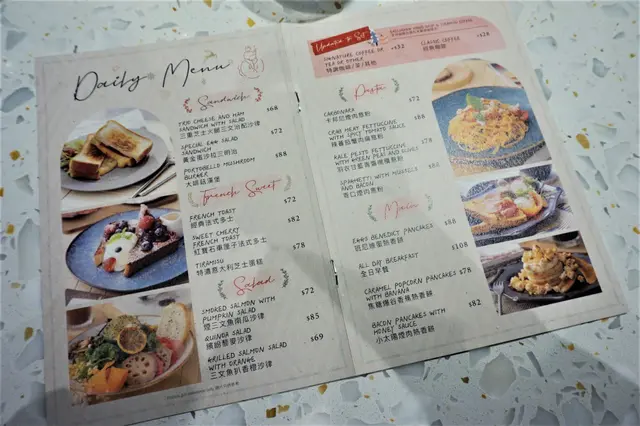 Daily Menu
Sandwich
TRIO CHEESE AND HAM $68
SANDWICH WITH SALAD
三重芝士火腿三文治配沙律
SPECIAL EGG SALAD $72
SANDWICH
黃金蛋沙拉三明治
PORTOBELLO MUSHROOM $88
BURGER
大啡菇漢堡
French Sweet
FRENCH TOAST $72
經典法式多士
SWEET CHERRY $82
FRENCH TOAST
紅寶石車厘子法式多士
TIRAMISU $78
特濃意大利芝士蛋糕
Salad
SMOKED SALMON WITH $72
PUMPKIN SALAD
煙三文魚南瓜沙律
QUINOA SALAD $85
繽紛藜麥沙律
GRILLED SALMON SALAD $69
WITH ORANGE
三文魚扒香橙沙律
Upgrade to Set
SIGNATURE COFFEE OR +$32
TEA OR OTHER
特調咖啡/茶/其他
CLASSIC COFFEE +$28
經典咖啡
Pasta
CARBONARA $72
卡邦尼煙肉意粉
CRAB MEAT FETTUCCINE $88
WITH SPICY TOMATO SAUCE
KALE PESTO FETTUCCINE $78
WITH GREEN PEAS AND OLIVES
SPAGHETTI WITH MORELLS $88
AND BACON
Main
EGGS BENEDICT PANCAKES $88
班尼迪蛋熱香餅
ALL DAY BREAKFAST $108
全日早餐
CARAMEL POPCORN PANCAKES $78
WITH BANANA
焦糖爆谷香蕉熱香餅
BACON PANCAKES WITH $82
HONEY SAUCE
小太陽煙肉熱香餅